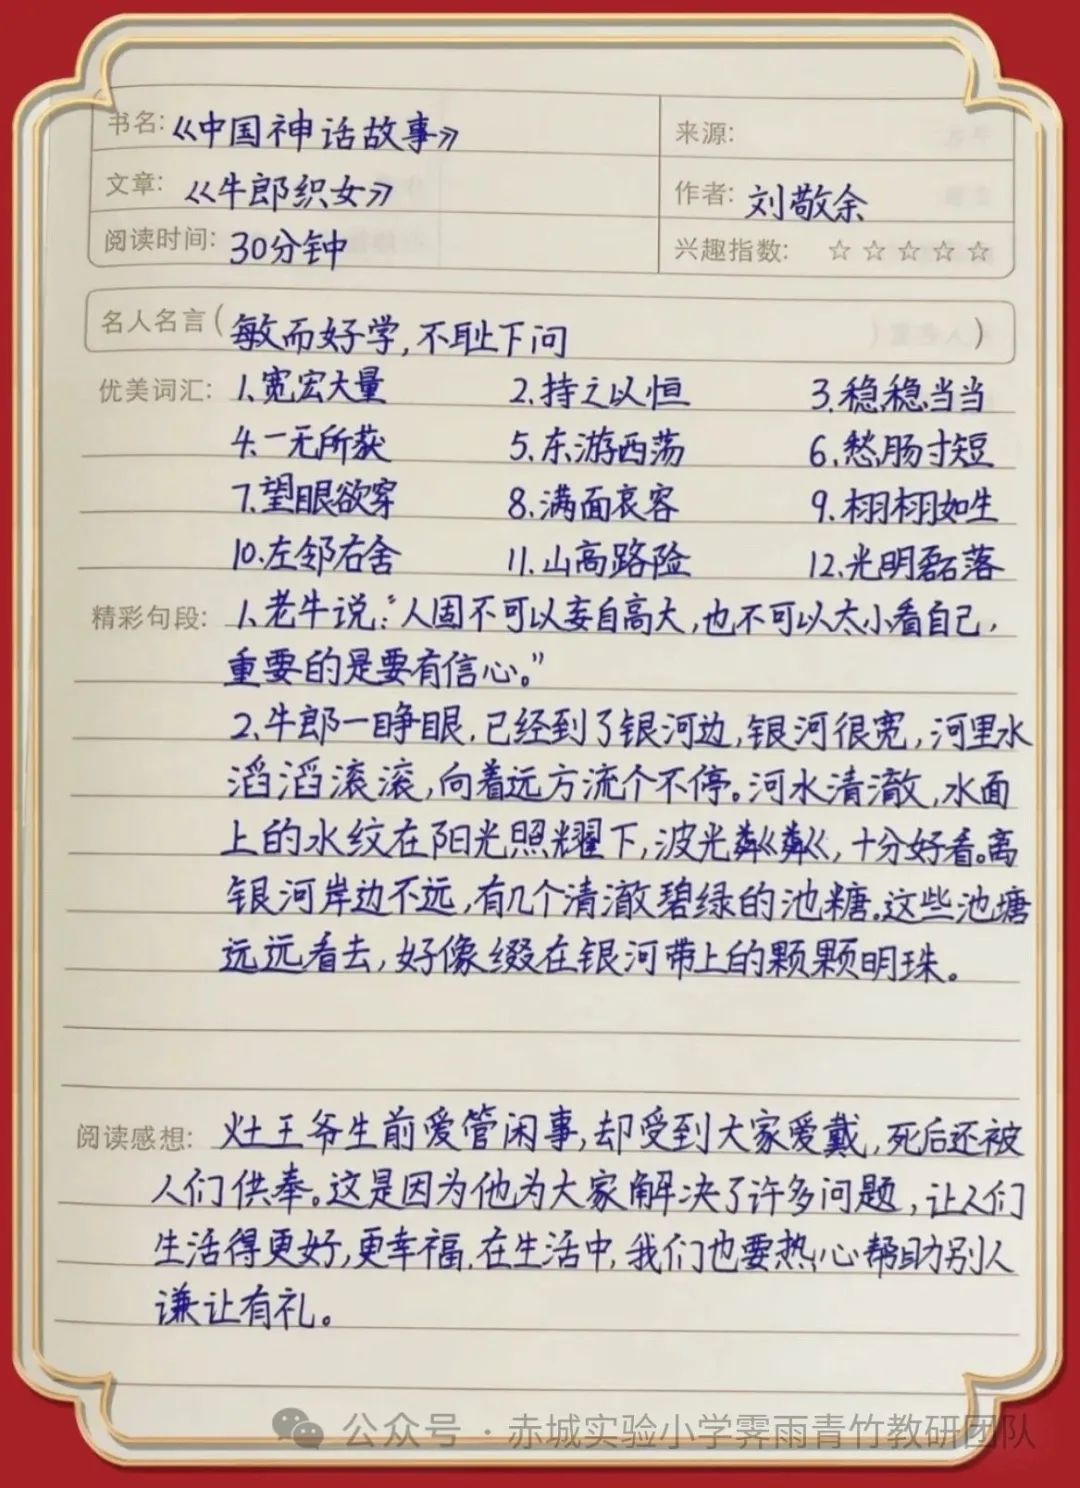 书名:《中国神话故事》
来源:
文章:《牛郎织女》
作者:刘敬余
阅读时间:30分钟
兴趣指数: ☆☆☆☆☆
名人名言(敏而好学,不耻下问)
优美词汇: 1.宽宏大量 2.持之以恒 3.稳稳当当
4.一无所获 5.东游西荡 6.愁肠寸短
7.望眼欲穿 8.满面哀容 9.栩栩如生
10.左邻右舍 11.山高路险 12.光明磊落
精彩句段: 1.老牛说:“人固不可以妄自高大,也不可以太小看自己,
重要的是要有信心。”
2.牛郎一睁眼,已经到了银河边,银河很宽,河里水
滔滔滚滚,向着远方流个不停。河水清澈,水面
上的水纹在阳光照耀下,波光粼粼,十分好看。离
银河岸边不远,有几个清澈碧绿的池糖。这些池塘
远远看去,好像缀在银河带上的颗颗明珠。
阅读感想: 灶王爷生前爱管闲事,却受到大家爱戴,死后还被
人们供奉。这是因为他为大家解决了许多问题,让人们
生活得更好,更幸福.在生活中,我们也要热心帮助别人
谦让有礼。
公众号·赤城实验小学霁雨青竹教研团队